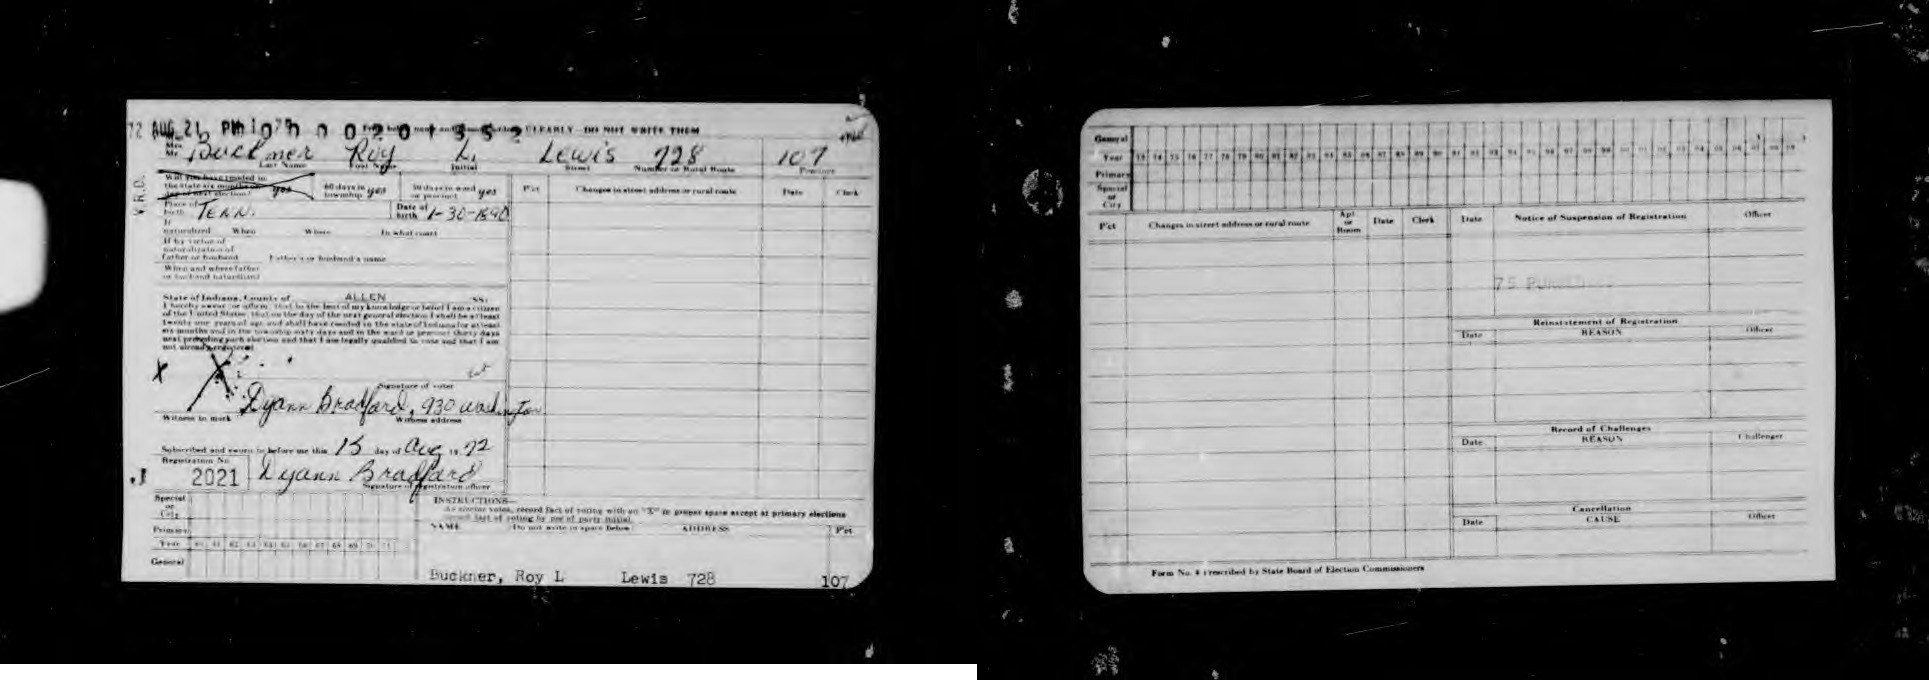 72 AUG 21 PM 1 CLEARLY—DO NOT WRITE THEM
Mrs
Mr Buckner Roy L. Lewis 728 107
Last Name First Name Initial Street Number or Rural Route Precinct
Will you have resided in
the state six months on yes 60 days in township yes 30 days in ward or precinct yes
day of next election?
P'ct Changes in street address or rural route Date Clerk
V.R.D.
Place of birth TENN. Date of birth 1-30-1890
If
naturalized When Where In what court
If by virtue of
naturalization of
father or husband Father's or husband's name
When and where father
or husband naturalized
State of Indiana, County of ALLEN SS:
I hereby swear or affirm, that to the best of my knowledge or belief I am a citizen
of the United States, that on the day of the next general election I shall be at least
twenty-one years of age and shall have resided in the state of Indiana for at least
six months and in the township sixty days and in the ward or precinct thirty days
next preceding such election and that I am legally qualified to vote and that I am
not already registered
X X
Signature of voter
Dyann Bradford, 930 Washington
Witness to mark Witness address
Subscribed and sworn to before me this 15 day of Aug 19 72
Registration No.
2021 Dyann Bradford
Signature of registration officer
Special
or
City
Primary
Year 60 61 62 63 64 65 66 67 68 69 70 71
General
INSTRUCTIONS—
As elector votes, record fact of voting with an "X" in proper space except at primary elections
record fact of voting by use of party initial.
NAME Do not write in space below ADDRESS P'ct
Buckner, Roy L Lewis 728 107
General
Year 73 74 75 76 77 78 79 80 81 82 83 84 85 86 87 88 89 90 91 92 93 94 95 96 97 98 99
Primary
Special
or
City
P'ct Changes in street address or rural route Apt or Room Date Clerk
Date Notice of Suspension of Registration Officer
75
Reinstatement of Registration
Date REASON Officer
Record of Challenges
Date REASON Challenger
Cancellation
Date CAUSE Officer
Form No. 4 Prescribed by State Board of Election Commissioners